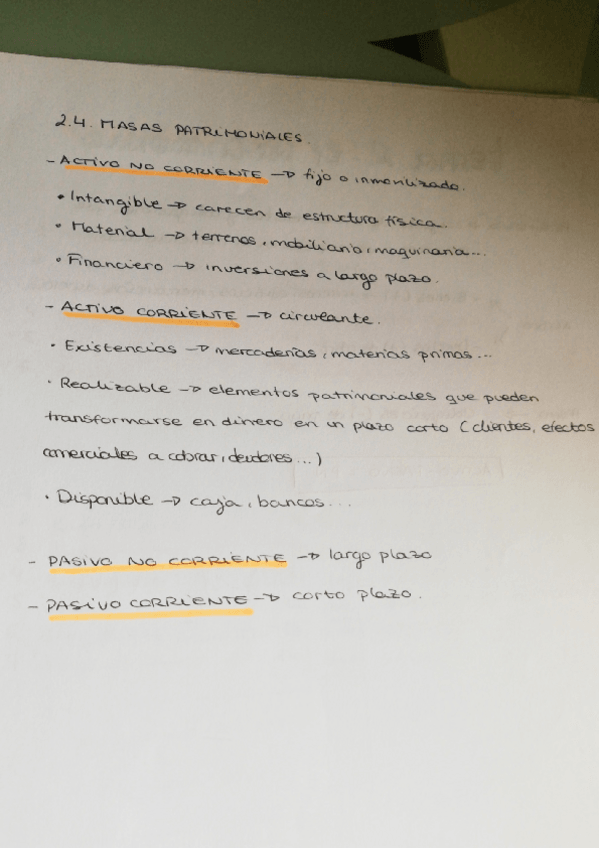 2.4. MASAS PATRIMONIALES.
- ACTIVO NO CORRIENTE → fijo o inmovilizado.
• Intangible → carecen de estructura física.
• Material → terrenos, mobiliario, maquinaria...
• Financiero → inversiones a largo plazo.
- ACTIVO CORRIENTE → circulante.
• Existencias → mercaderías, materias primas...
• Realizable → elementos patrimoniales que pueden
transformarse en dinero en un plazo corto (clientes, efectos
comerciales a cobrar, deudores...)
• Disponible → caja, bancos...
- PASIVO NO CORRIENTE → largo plazo
- PASIVO CORRIENTE → corto plazo.